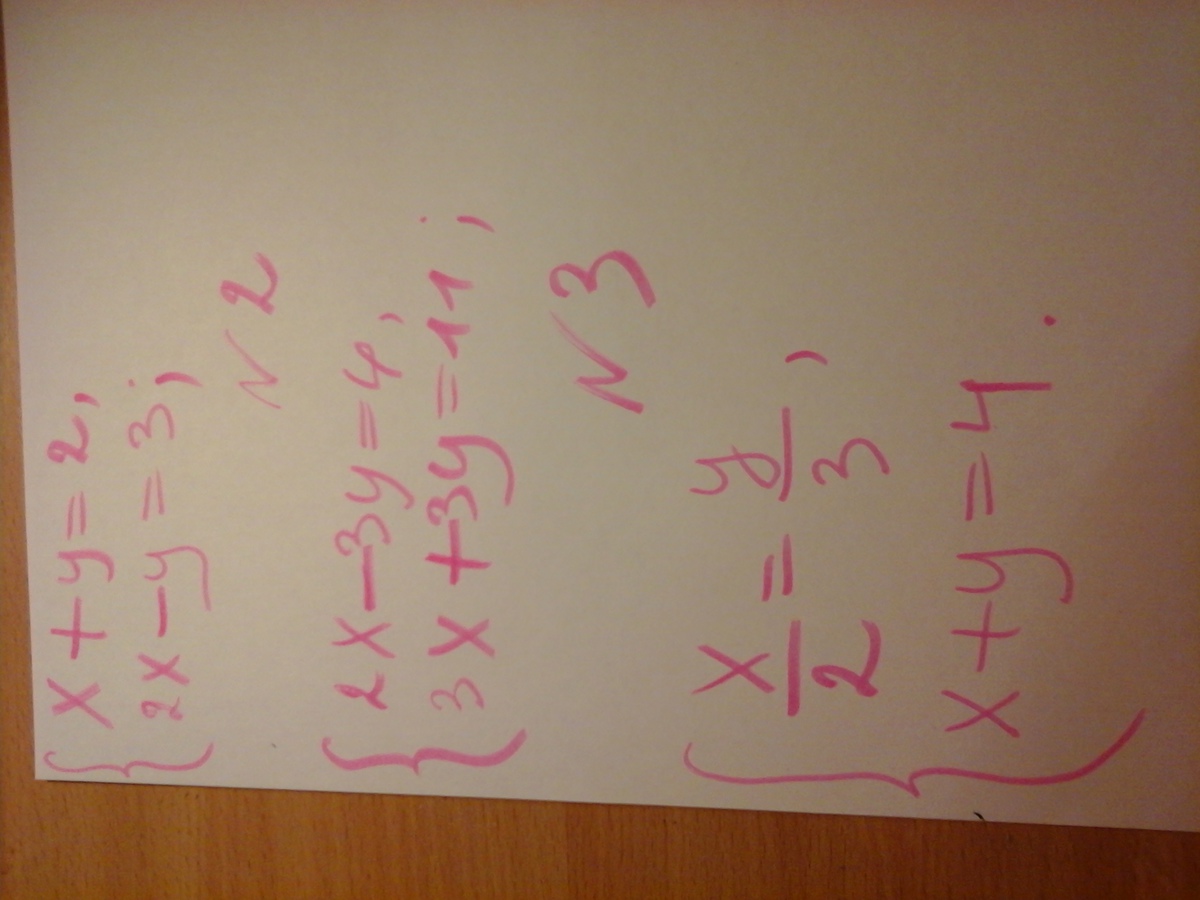 x + y = 2,
2x - y = 3;
N 2
2x - 3y = 4,
3x + 3y = 11;
N 3
x/2 = y/3,
x + y = 4.